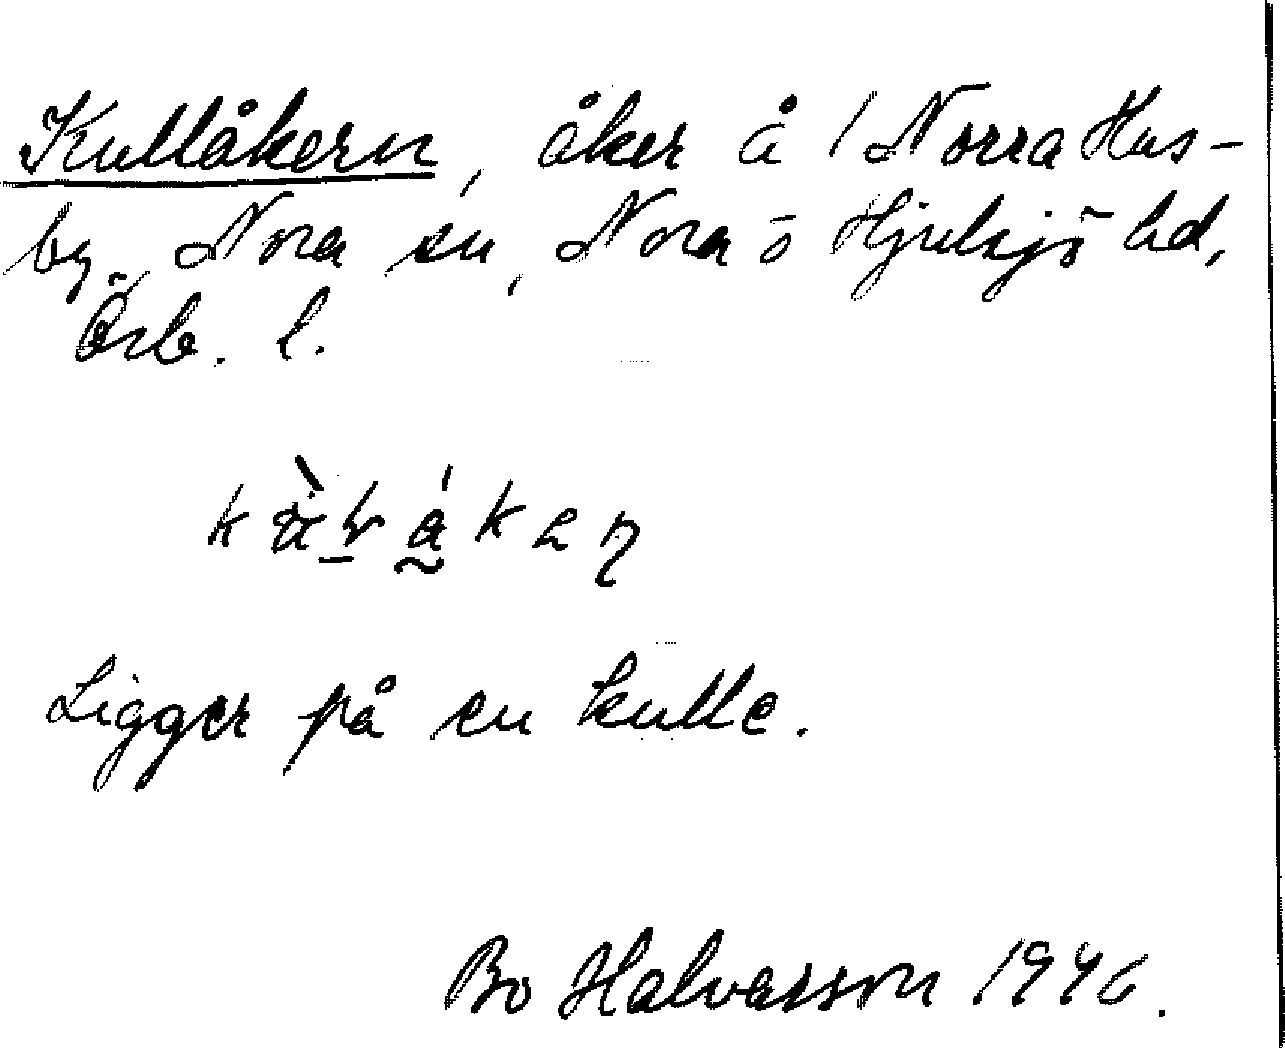 Kullåkern, åker å / Norra Hus-
by, Nora sn, Nora o Hjulsjö hd,
Örb. l.
Ligger på en kulle.
Bo Halvarsson 1946.